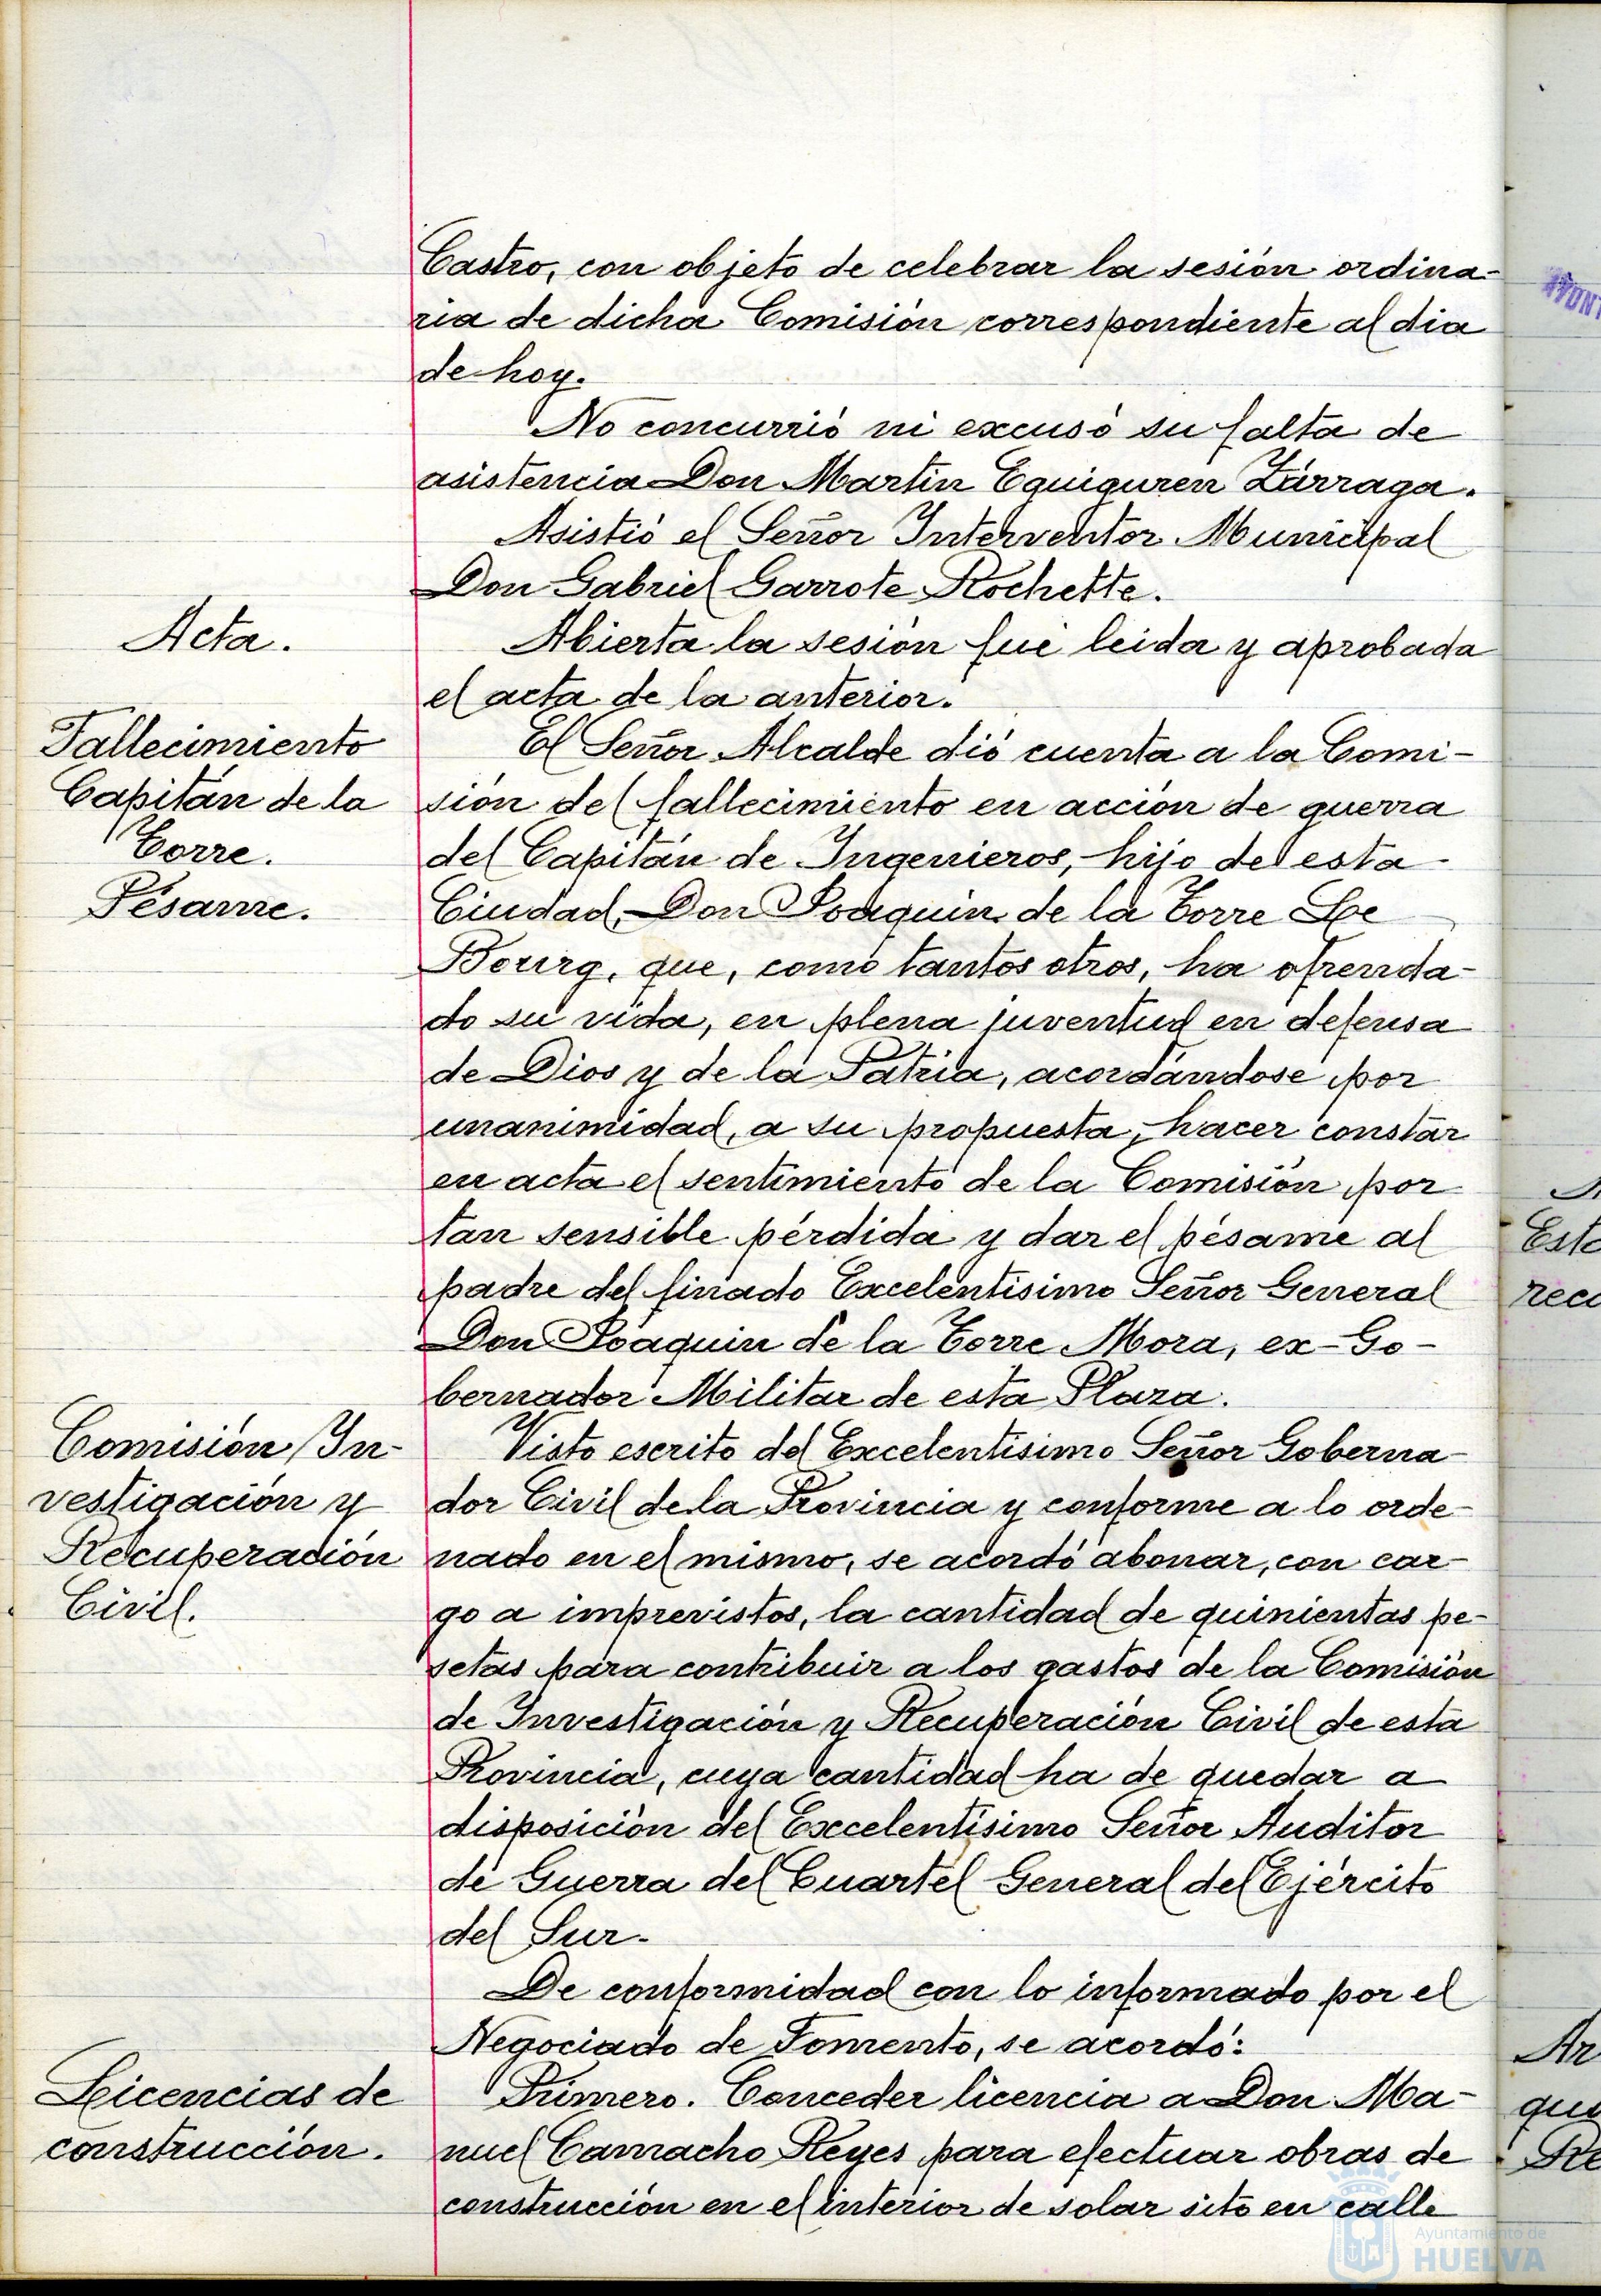 Castro, con objeto de celebrar la sesión ordina-
ria de dicha Comisión correspondiente al dia
de hoy.
No concurrió ni excusó su falta de
asistencia Don Martin Eguiguren Zárraga.
Asistió el Señor Interventor Municipal
Don Gabriel Garrote Rochette.
Acta.
Abierta la sesión fué leida y aprobada
el acta de la anterior.
Fallecimiento
Capitán de la
Torre.
Pésame.
El Señor Alcalde dió cuenta a la Comi-
sión del fallecimiento en acción de guerra
del Capitán de Ingenieros, hijo de esta
Ciudad, Don Joaquin de la Torre Le
Bourg, que, como tantos otros, ha ofrenda-
do su vida, en plena juventud en defensa
de Dios y de la Patria, acordándose por
unanimidad, a su propuesta, hacer constar
en acta el sentimiento de la Comisión por
tan sensible pérdida y dar el pésame al
padre del finado Excelentisimo Señor General
Don Joaquin de la Torre Mora, ex-Go-
bernador Militar de esta Plaza.
Comisión In-
vestigación y
Recuperación
Civil.
Visto escrito del Excelentisimo Señor Goberna-
dor Civil de la Provincia y conforme a lo orde-
nado en el mismo, se acordó abonar, con car-
go a imprevistos, la cantidad de quinientas pe-
setas para contribuir a los gastos de la Comisión
de Investigación y Recuperación Civil de esta
Provincia, cuya cantidad ha de quedar a
disposición del Excelentisimo Señor Auditor
de Guerra del Cuartel General del Ejército
del Sur.
De conformidad con lo informado por el
Negociado de Fomento, se acordó:
Licencias de
construcción.
Primero. Conceder licencia a Don Ma-
nuel Camacho Reyes para efectuar obras de
construcción en el interior de solar sito en calle
Ayuntamiento de
HUELVA